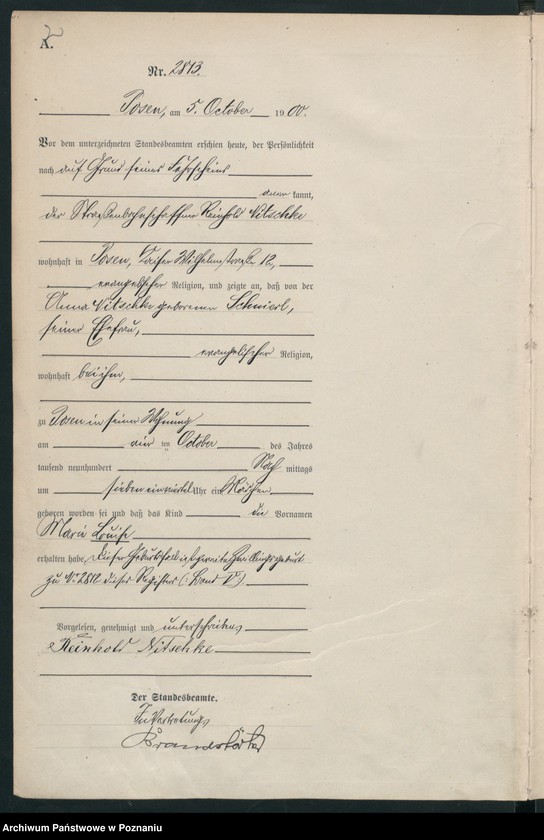 A.
Nr. 2813.
Posen, am 5. October 1900.
Vor dem unterzeichneten Standesbeamten erschien heute, der Persönlichkeit
nach auf Grund seines Fahrscheins
anerkannt,
der Straßenbahnschaffner Reinhold Nitschke
wohnhaft in Posen, Kaiser Wilhelmstraße 12,
evangelischer Religion, und zeigte an, daß von der
Anna Nitschke geborenen
seiner Ehefrau,
evangelischer Religion,
wohnhaft bei ihm,
zu Posen in seiner Wohnung
am ein ten October des Jahres
tausend neunhundert Nachmittags
um sieben einviertel Uhr ein Mädchen
geboren worden sei und daß das Kind die Vornamen
Maria Louise
erhalten habe. Dieser Geburtsfall ist zweite Zwillingsgeburt
zu No 2812 dieses Registers (: Band V:)
Vorgelesen, genehmigt und unterschrieben
Reinhold Nitschke
Der Standesbeamte.
In Vertretung
Archiwum Państwowe w Poznaniu